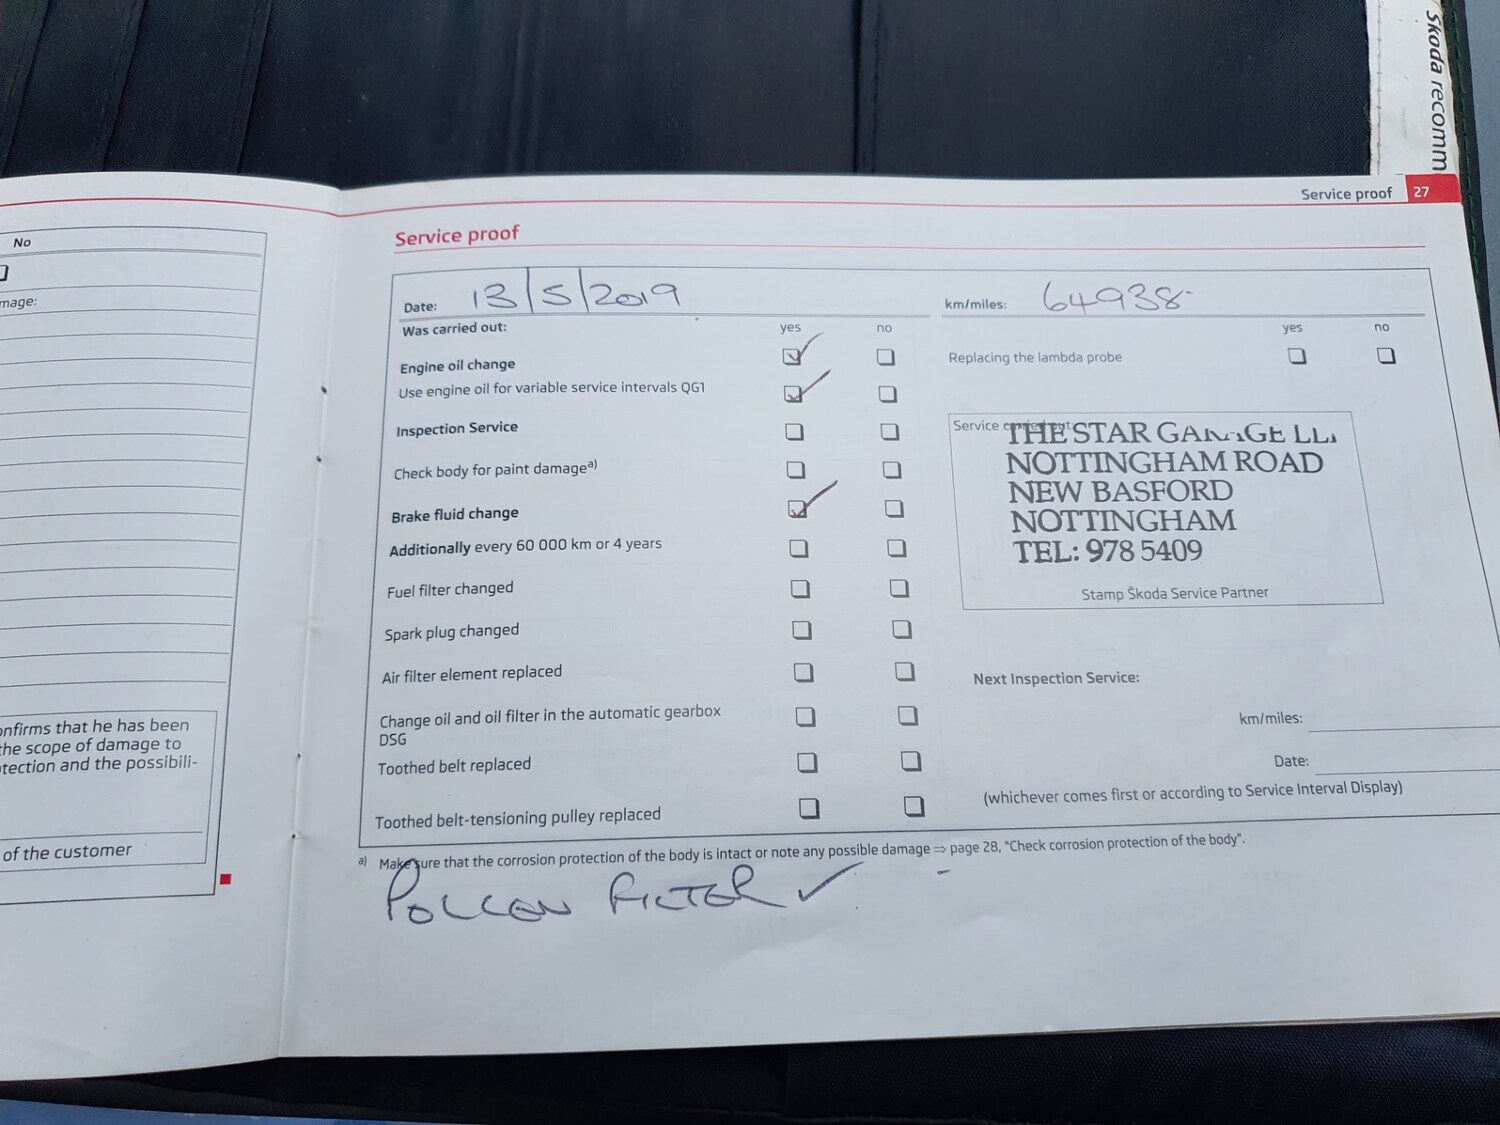 Škoda recomm
Service proof 27
No
mage:
onfirms that he has been
the scope of damage to
tection and the possibili-
of the customer
Service proof
Date: 13/5/2019 km/miles: 64938
Was carried out: yes no yes no
Engine oil change
Replacing the lambda probe
Use engine oil for variable service intervals QG1
Inspection Service
Check body for paint damage a)
Brake fluid change
Additionally every 60 000 km or 4 years
Fuel filter changed
Spark plug changed
Air filter element replaced
Change oil and oil filter in the automatic gearbox
DSG
Toothed belt replaced
Toothed belt-tensioning pulley replaced
Service carried out:
THE STAR GARAGE
NOTTINGHAM ROAD
NEW BASFORD
NOTTINGHAM
TEL: 978 5409
Stamp Škoda Service Partner
Next Inspection Service:
km/miles:
Date:
(whichever comes first or according to Service Interval Display)
a) Make sure that the corrosion protection of the body is intact or note any possible damage ⇒ page 28, "Check corrosion protection of the body".
POLLEN FILTER ✓